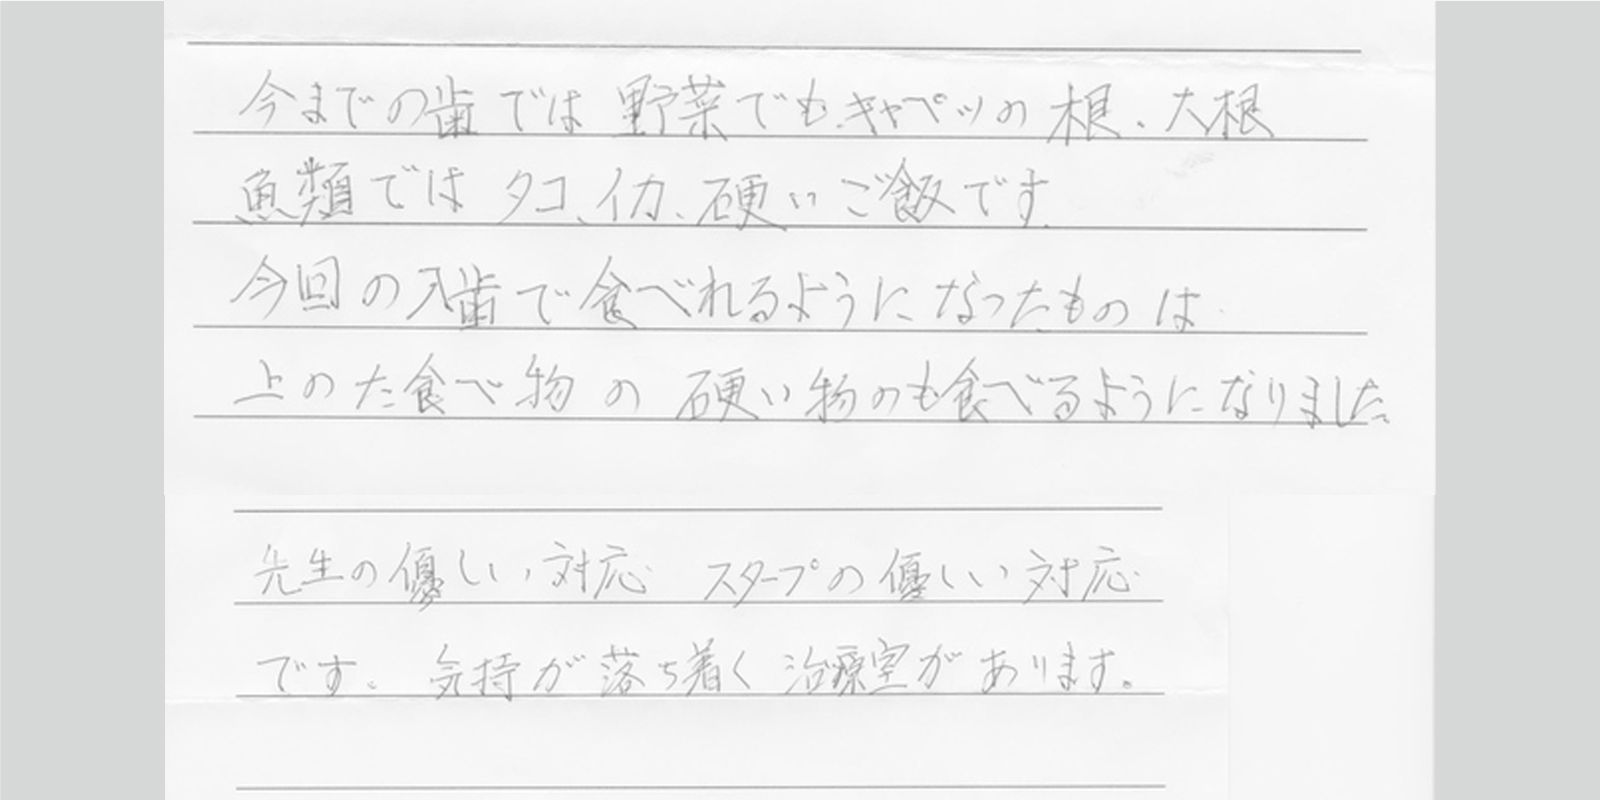 今までの歯では 野菜でも、キャペツの 根、大根
魚類では タコ、イカ、硬いご飯です.
今回の入歯で食べれるようになったものは
上のた食べ物の 硬い物のも食べるようになりました。
先生の優しい対応 スタープの優しい対応
です。 気持が落ち着く 治療室があります。